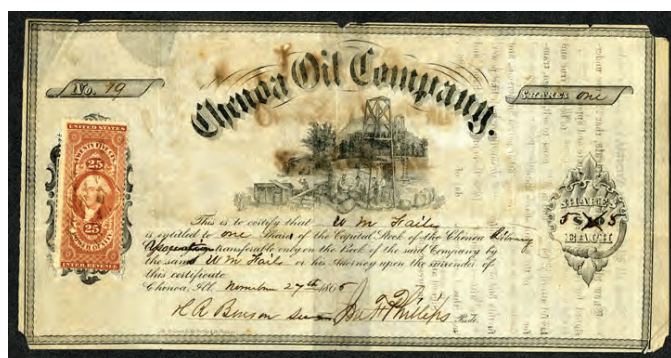 Chenoa Oil Company.
No. 19
SHARES one
UNITED STATES
25
25
INTER. REVENUE
SHARES
EACH
This is to certify that W M Fails
is entitled to one Share of the Capital Stock of the Chenoa Library
Association transferable only on the Book of the said Company by
the said W M Fails or his Attorney upon the surrender of
this certificate
Chenoa, Ill. November 27th 1865
H A Binson Phillips Pres.